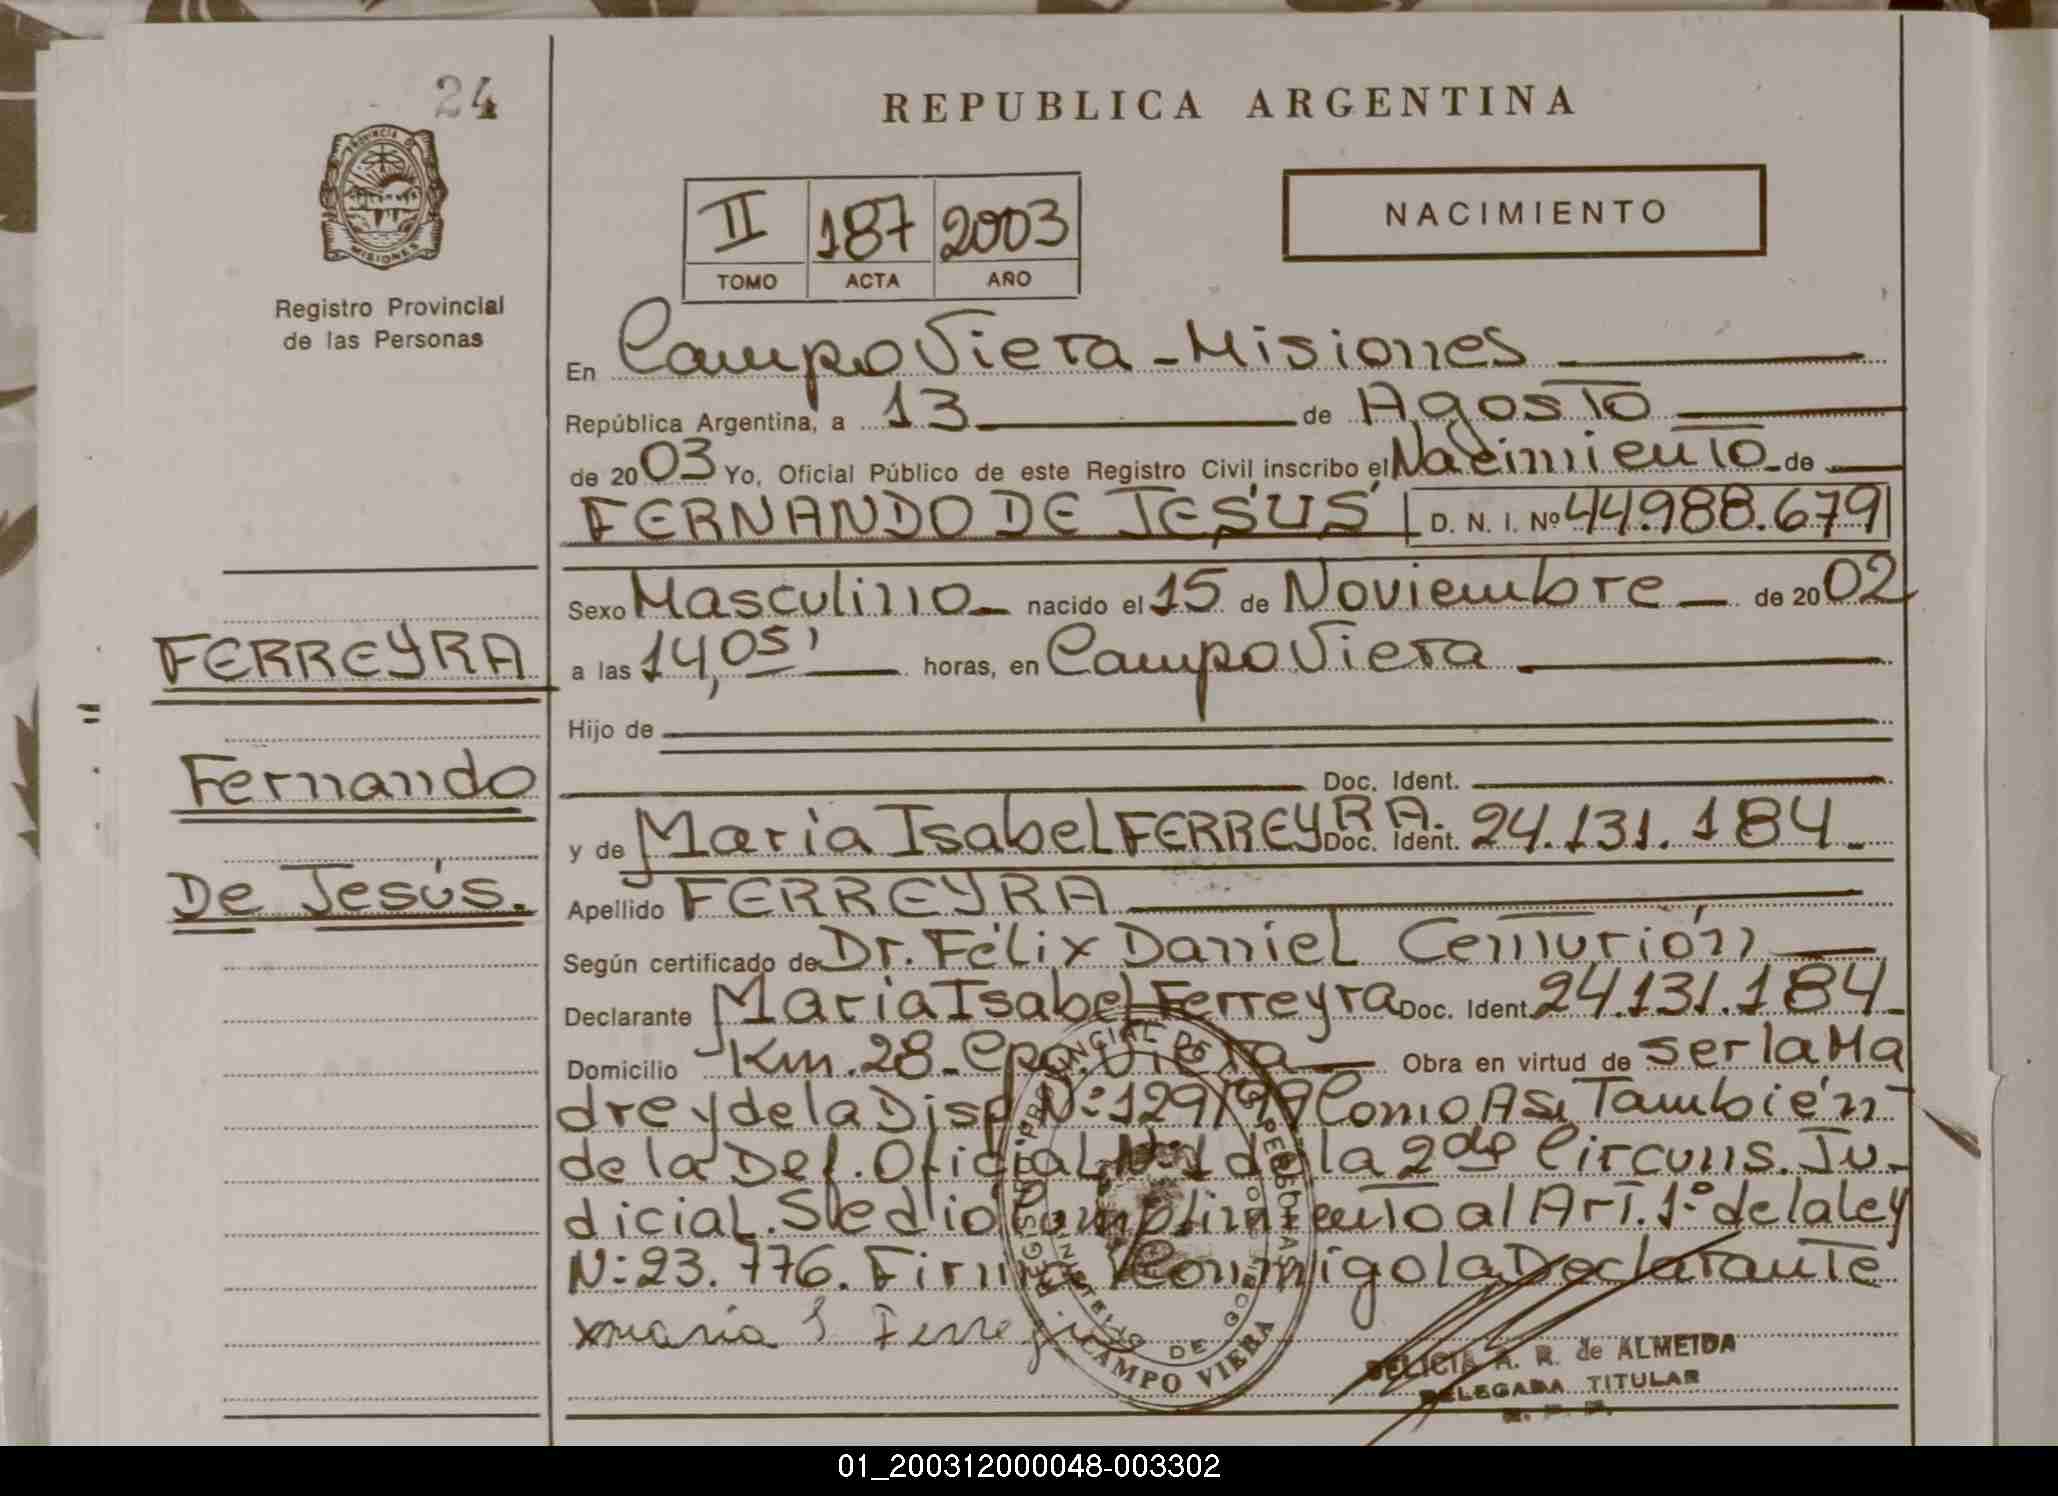 24
PROVINCIA DE
MISIONES
Registro Provincial
de las Personas
FERREYRA
Fernando
De Jesús.
REPUBLICA ARGENTINA
II 187 2003
TOMO ACTA AÑO
NACIMIENTO
En Campo Viera - Misiones
República Argentina, a 13 de Agosto
de 2003 Yo, Oficial Público de este Registro Civil inscribo el Nacimiento de
FERNANDO DE JESÚS D. N. I. Nº 44.988.679
Sexo Masculino nacido el 15 de Noviembre de 2002
a las 14,05' horas, en Campo Viera
Hijo de
Doc. Ident.
y de Maria Isabel FERREYRA. Doc. Ident. 24.131.184
Apellido FERREYRA
Según certificado de Dr. Félix Daniel Centurión
Declarante Maria Isabel Ferreyra Doc. Ident. 24.131.184
Domicilio Km. 28 - Cpo. Viera Obra en virtud de ser la Ma
dre y de la Disp. Nº 129/99 Como Asi También
de la Def. Oficial Nº 1 de la 2da Circuns. Ju-
dicial. Se dio Cumplimiento al Art. 1º de la ley
Nº 23.776. Firma Conmigo la Declarante
x maria I Ferreyra
REGISTRO PROVINCIAL DE LAS PERSONAS
MINISTERIO DE GOBIERNO
CAMPO VIERA
DELICIA A. R. de ALMEIDA
DELEGADA TITULAR
R. P. P.
01_200312000048-003302